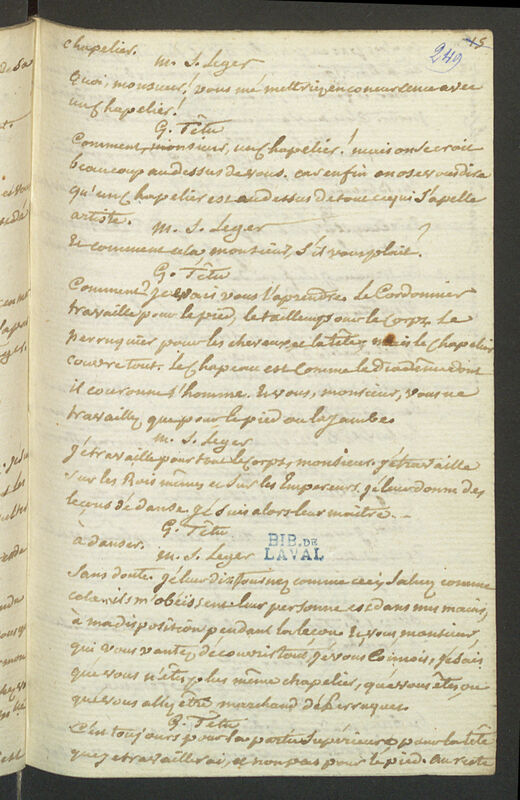 45
249
chapelier.
M. S. Leger
Quoi, monsieur! vous me mettriez en concurrence avec
un Chapelier!
G. Têtu
Comment, monsieur, un Chapelier! mais on se croit
beaucoup au dessus de vous. car enfin on ose vous dire
qu'un Chapelier est au dessus de tout ce qui s'apelle
artiste.
M. S. Leger
Et comment cela, monsieur, s'il vous plait?
G. Têtu
Comment? je vais vous l'aprendre. Le Cordonnier
travaille pour le pied, le tailleur pour le corps, Le
perruquier pour les cheveux, et la tête, mais le Chapelier
couvre tout. Le Chapeau est comme le diadême dont
il couronne l'homme. Et vous, monsieur, vous ne
travaillez que pour le pied ou la jambe.
M. S. Leger
Je travaille pour tout le corps, monsieur. je travaille
sur les Rois mêmes et sur les Empereurs. je leur donne des
leçons de danse, je suis alors leur maitre.
G. Têtu
à danser.
M. S. Leger
BIB. DE
LAVAL
Sans doute. je leur dis tournez comme ceci, saluez comme
cela. ils m'obeissent. leur personne est dans mes mains,
à ma disposition pendant la leçon. Et vous monsieur,
qui vous vantez de couvrir tout, je vous connois, je sais
que vous n'êtes plus même chapelier, que vous êtes, ou
que vous allez être marchand de Perruques.
G. Têtu
C'est toujours pour la partie supérieure, pour la tête
que je travaillerai, et non pas pour le pied. Au reste